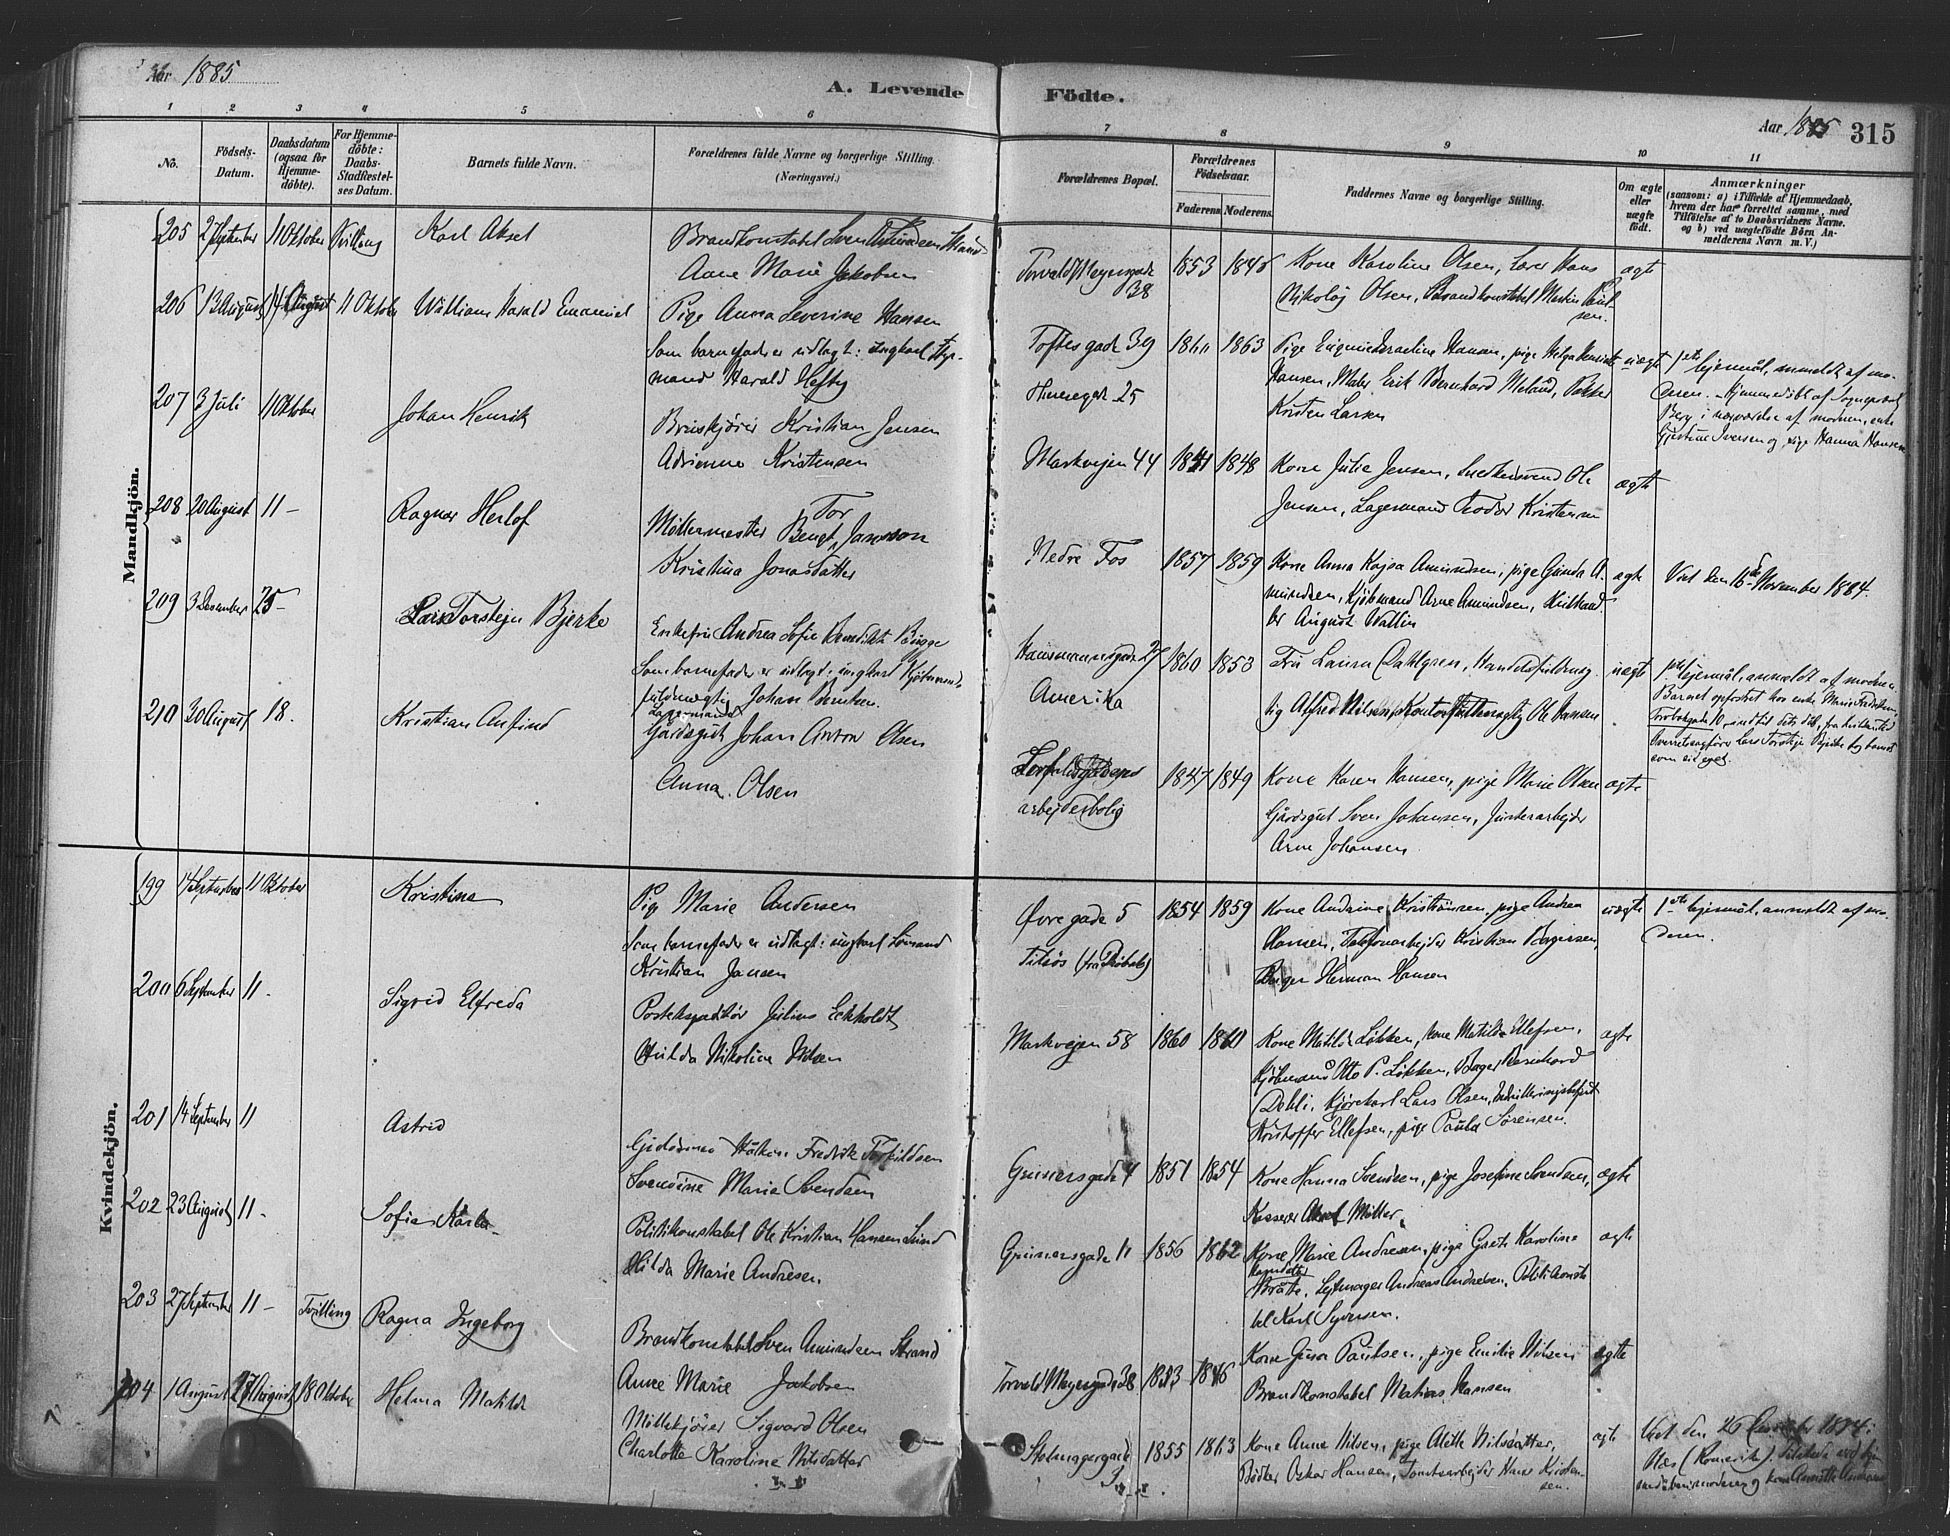 Aar 1885
A. Levende Födte.
Aar 1885 315
1 2 3 4 5 6 7 8 9 10 11
No.
Födsels-Datum.
Daabsdatum (ogsaa for Hjemme-döbte).
For Hjemme-döbte: Daabs-Stadfæstel-ses Datum.
Barnets fulde Navn.
Forældrenes fulde Navne og borgerlige Stilling.
(Næringsvei.)
Forældrenes Bopæl.
Forældrenes Födselsaar.
Faderens Moderens
Faddernes Navne og borgerlige Stilling.
Om ægte eller uægte födt.
Anmærkninger
(saasom: a) i Tilfælde af Hjemmedaab,
hvem der har forrettet samme, med
Tilföielse af to Daabsvidners Navne.
og b) ved uægtefödte Börn An-
melderens Navn m. V.)
Mandkjön.
205 27 September 11 Oktober Tvilling Karl Aksel
Brandkonstabel Sven Strand
Anne Marie Jakobsen
Torvald Meyersgade 38 1853 1846
Kone Karoline Olsen, Hans
Nikolaj Olsen, Brandkonstabel Martin Paul-
sen.
ægte
206 13 August 14 August 11 Oktober William Harald Emanuel
Pige Anna Severine Hansen
Som barnefader er udlagt: ungkarl Styr-
mand Harald Hefty
Toftesgade 39 1863
Pige Hansen, pige Helga
Hansen, Maler Erik Bernhard
Karsten Larsen
uægte
1ste lejermål, anmeldt af mo-
deren. Hjemmedöbt af Sognepræst
Berg i nærværelse af moderen, enke
Iversen og pige Hanna Hansen
207 3 Juli 11 Oktober Johan Henrik
Kristian Jensen
Kristensen
Markvejen 44 1848
Kone Julie Jensen, Snedkersvend Ole
Jensen, Lagermand Teodor Kristensen
ægte
208 20 August 11 - Ragnar Herlof
Möllermester Bengt Tor Jansson
Kristina Jonasdatter
Nedre Fos 1857 1859
Kone Anna Kajsa Amundsen, pige Gunda A-
mundsen, Kjöbmand Arne Amundsen,
August Wallin
ægte
Vac. den 16de November 1884.
209 3 Desember 25 - Lars Torstejn Bjerke
Enkefru Andrea Sofie Benedikte Bugge
Som barnefader er udlagt: ungkarl Kjöbmands-
fuldmægtig Johan
Hausmannsgade 27 1860 1853
Amerika
Fru Laura Dahlgren, Handelsfuldmæg-
tig Alfred Nilsen, Kontorfuldmægtig Ole Hansen
uægte
lejermål, anmeldt af moderen.
Barnet opfostret hos enke Marie
Overretssagförer Lars Torstejn Bjerke tog barnet
som sit eget.
210 30 August 18. Kristian Anfind
Lagermand
Gårdsgut Johan Anton Olsen
Anna Olsen
arbejderbolig
1847 1849
Kone Karen Hansen, pige Marie Olsen
Gårdsgut Sven Johansen,
Arne Johansen
ægte
Kvindekjön.
199 14 September 11 Oktober Kristine
Pige Marie Andersen
Som barnefader er udlagt: ungkarl Sömand
Kristian Jansen
Övregade 5 1854 1859
Kone Andrine Kristiansen, pige Andrea
Hansen, Kristian
Herman Hansen
uægte
1ste lejermål, anmeldt af mo-
deren.
200 6 September 11 - Sigrid Elfreda
Postekspeditör Julius Eckholdt
Hulda Nikoline Nilsen
Markvejen 58 1860 1860
Kone Matilde Lökken, kone Matilde Ellefsen,
Kjöbmand Otto P. Lökken, Bager Bernhard
Dehli, Kjörekarl Lars Olsen,
Kristoffer Ellefsen, pige Paula Sörensen.
ægte
201 14 September 11 Astrid
Håkon Fredrik Torkildsen
Svendine Marie Svendsen
Grünersgade 4 1851 1854
Kone Hanna Svendsen, pige Josefine Svendsen,
Kasserer Aksel Möller.
ægte
202 23 August 11 - Sofie Karla
Politikonstabel Ole Kristian Hansen Lund
Hilda Marie Andresen.
Grünersgade 11 1856 1862
Kone Marie Andresen, pige Grete Karoline
Bråte, Andreas Andresen, Politikonsta-
bel Karl Syversen.
ægte
203 27 September 11 - Tvilling Ragna Ingeborg
Brandkonstabel Sven Amundsen Strand
Anne Marie Jakobsen
Torvald Meyersgade 38 1853 1846
Kone Paulsen, pige Emilie Nilsen
Brandkonstabel Mathias Hansen
ægte
204 1 August 18 Oktober Helma Matilde
Möllekjörer Sigvard Olsen
Charlotte Karoline Nilsdatter
Stolmagergade 1855 1863
Kone Anne Nilsen, pige Alette Nilsdatter,
Bödker Oskar Hansen, Tomtearbejder Hans Kristen-
sen.
ægte
Vac. den 26 1884 i
Næs (Romerike).